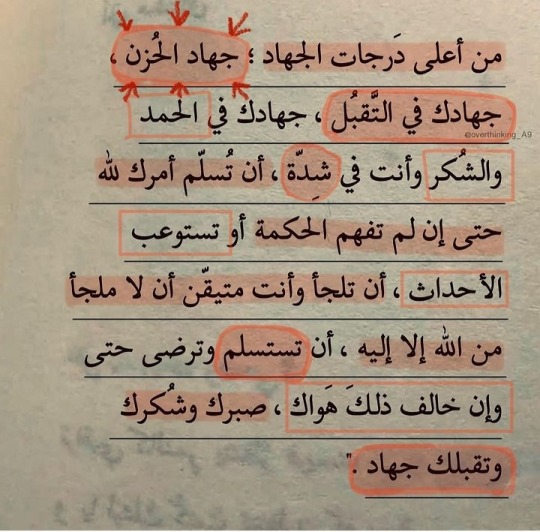 من أعلى دَرجات الجهاد ؛ جهاد الحُزن ،
جهادك في التَّقبُل ، جهادك في الحمد
@overthinking_A9
والشُكر وأنت في شِدّة ، أن تُسلّم أمرك لله
حتى إن لم تفهم الحكمة أو تستوعب
الأحداث ، أن تلجأ وأنت متيقّن أن لا ملجأ
من الله إلا إليه ، أن تستسلم وترضى حتى
وإن خالف ذلكَ هَواك ، صبرك وشُكرك
وتقبلك جهاد ."